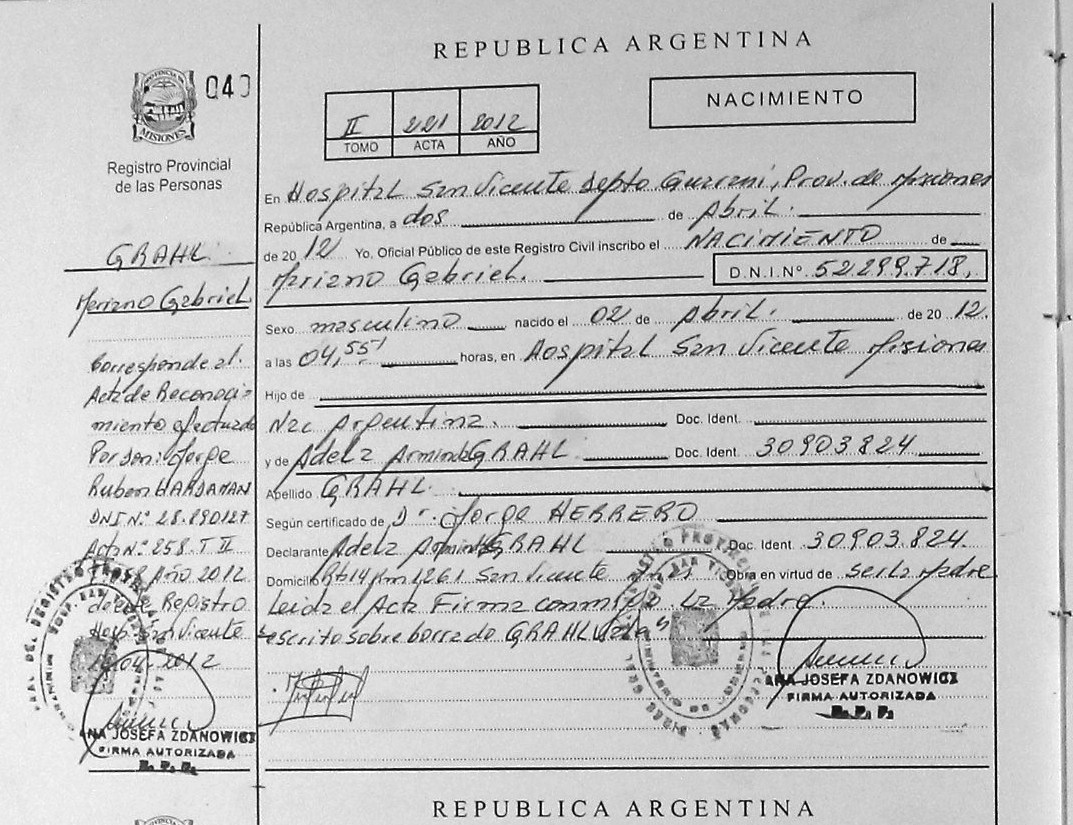 REPUBLICA ARGENTINA
040
PROVINCIA DE
MISIONES
Registro Provincial
de las Personas
NACIMIENTO
II 221 2012
TOMO ACTA AÑO
GRAHL.
Mariano Gabriel.
Corresponde al.
Acta de Reconoci-
miento efectuado
Por son: Jorge
Ruben HARDAMAN
DNI Nº 28.890127
Acta Nº 258. T II
Año 2012
de este Registro
Hosp. San Vicente
04. 2012
ANA JOSEFA ZDANOWICZ
FIRMA AUTORIZADA
R. P. P.
En Hospital San Vicente Depto Guarani, Prov. de Misiones
República Argentina, a dos de Abril.
de 2012 Yo. Oficial Público de este Registro Civil inscribo el NACIMIENTO de
Mariano Gabriel. D.N.I.Nº 52.299.718,
Sexo masculino nacido el 02 de Abril. de 2012.
a las 04,55 horas, en Hospital San Vicente Misiones
Hijo de
Nac Argentina. Doc. Ident.
y de Adela Arminda GRAHL Doc. Ident. 30903824
Apellido GRAHL.
Según certificado de Dr. Jorge HERRERO
Declarante Adela Arminda GRAHL Doc. Ident. 30.903.824.
Domicilio Rt 14 km 1261 San Vicente Mnes Obra en virtud de ser la Madre
Leida el Acta Firma conmigo La Madre.
escrito sobre borrado GRAHL
ANA JOSEFA ZDANOWICZ
FIRMA AUTORIZADA
R. P. P.
REPUBLICA ARGENTINA